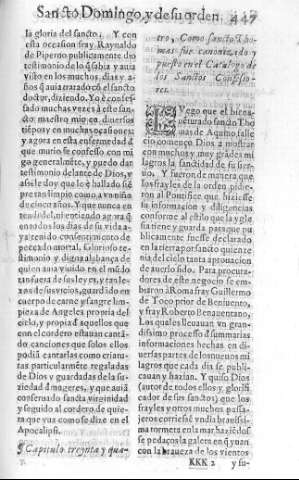 Sancto Domingo, y de su orden. 447
la gloria del sancto. Y con
esta occasion fray Raynaldo
de Piperno publicamente dio
testimonio de lo q̃ sabia y auia
visto en los muchos dias, y a-
ños q̃ auia tratado cõ el sancto
doctor, diziendo, Yo è confes-
sado muchas vezes à este san-
cto maestro mio en diuersos
tiẽpos y en muchas ocasiones;
y agora en esta enfermedad d̃
que murio se confesso con mi-
go generalmẽte, y puedo dar
testimonio delante de Dios, y
assi le doy, que le è hallado siẽ
pre tan limpio como vn niño
de cinco años. Y que nunca en-
tendi del, ni entiendo agora q̃
en todos los dias de su vida a-
ya tenido consentimiento de
peccado mortal. Glorioso te-
stimonio y digna alabança de
quien auia viuido en el mũdo
tan fuera de sus leyes, y tan le-
xos de sus vicios, guardando en
cuerpo de carne y sangre lim-
pieza de Angeles propria del
cielo, y propria d̃ aquellos que
en el cordero estauan cantã-
do canciones que solos ellos
podiã cantarlas como criatu-
ras particularmẽte regaladas
de Dios y guardadas de la su-
ziedad d̃ mugeres, y que auiã
conseruado sancta virginidad
y seguido al cordero de quie-
ra que vua como se dize en el
Apocalipsi.
¶ Capitulo treynta y qua-
tro, Como sancto Tho
mas fue canonizado y
puesto en el Catalogo de
los Sanctos Confesso-
res.
LVego que el biena-
uenturado sancto Tho
mas de Aquino falle
cio començo Dios a mostrar
con muchos y muy grãdes mi
lagros la sanctidad de su sier-
uo. Y fueron de manera que
los frayles de la orden pidie-
rõ al Pontifice que hizies-
se su informacion y diligencias
conforme al estilo que la ygle
sia tiene y guarda para que pu
blicamente fuesse declarado
en la tierra por sancto quien te
nia del cielo tanta aprouacion
de auerlo sido. Para procura-
dores de este negocio se em-
biaron à Roma fray Guillermo
de Toco prior de Beniuento,
y fray Roberto Benauentano.
Los quales lleuauan vn gran-
dissimo processo d̃ summarias
informaciones hechas en di-
uersas partes de los nueuos mi
lagros que cada dia se publi-
cauan y hazian. Y quiso Dios
(autor de todos ellos y, glorifi
cador de sus sanctos) que los
frayles y otros muchos passa-
geros corriessẽ vn dia brauissi
ma tormenta en la mar haziẽdo
se pedaços la galera en q̃ yuan
con la braueza de los vientos
KKK 2 y fu-